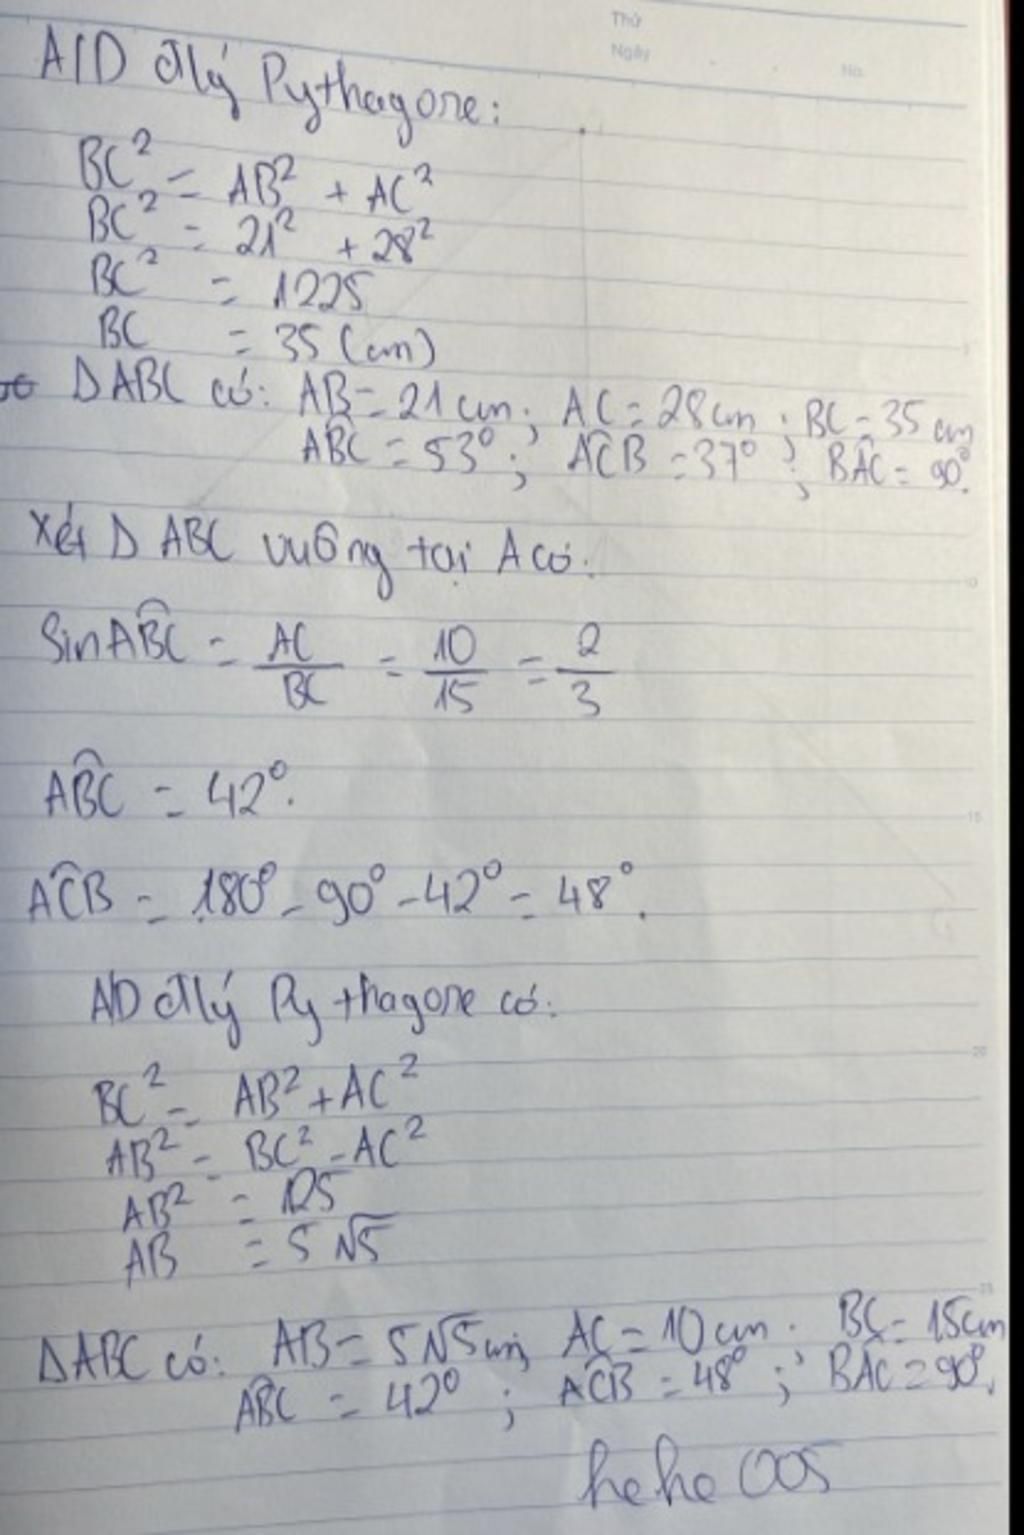 Thứ
Ngày
No.
A/D đlý Pythagore:
BC² = AB² + AC²
BC² = 21² + 28²
BC² = 1225
BC = 35 (cm)
ΔABC có: AB = 21 cm; AC = 28cm; BC = 35 cm
ABC = 53°; ACB = 37°; BAC = 90°.
Xét Δ ABC vuông tại A có:
Sin ABC = AC/BC = 10/15 = 2/3
ABC = 42°.
ACB = 180° - 90° - 42° = 48°.
A/D đlý Pythagore có:
BC² = AB² + AC²
AB² = BC² - AC²
AB² = 125
AB = 5√5
ΔABC có: AB = 5√5 cm; AC = 10 cm. BC = 15cm
ABC = 42°; ACB = 48°; BAC = 90°.
hehe